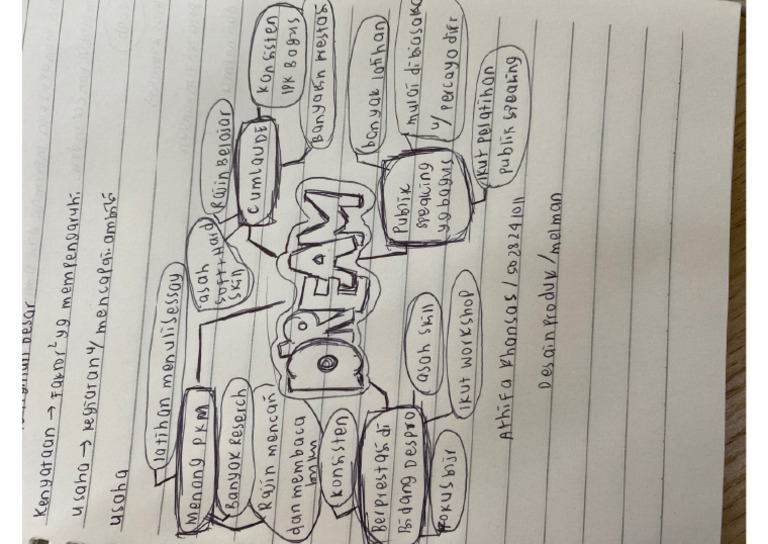 besar
Kenyataan → Faktor² yg mempengaruhi
usaha → kegiatan u/ mencapai ambisi
usaha
latihan menulis essay
Menang PKM
Banyak Reserch
Rajin mencari
dan membaca
konsisten
Berprestasi di
Bidang DESPRO
Fokus bljr
asah skill
ikut workshop
DREAM
asah
soft+Hard
skill
Rajin Belajar
CUMLAUDE
Konsisten
IPK Bagus
Banyakin Prestasi
Publik
speaking
yg bagus
banyak latihan
mulai dibiasakan
u/ percaya diri
Ikut pelatihan
publik speaking
Athifa Khansas / 5028241011
Desain produk / melman